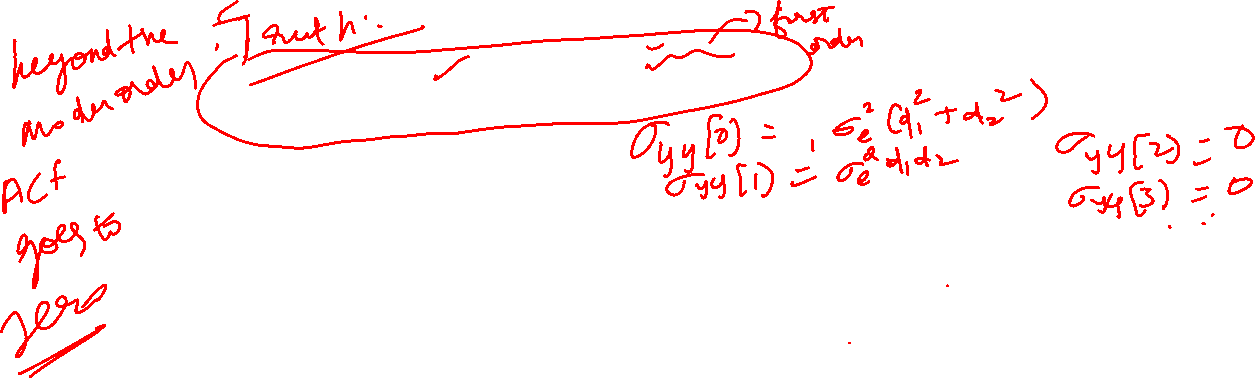 beyond the
model order,
ACF
goes to
zero
first
order
σyy[0] = σe²(d1² + d2²)
σyy[1] = σe² d1 d2
σyy[2] = 0
σyy[3] = 0